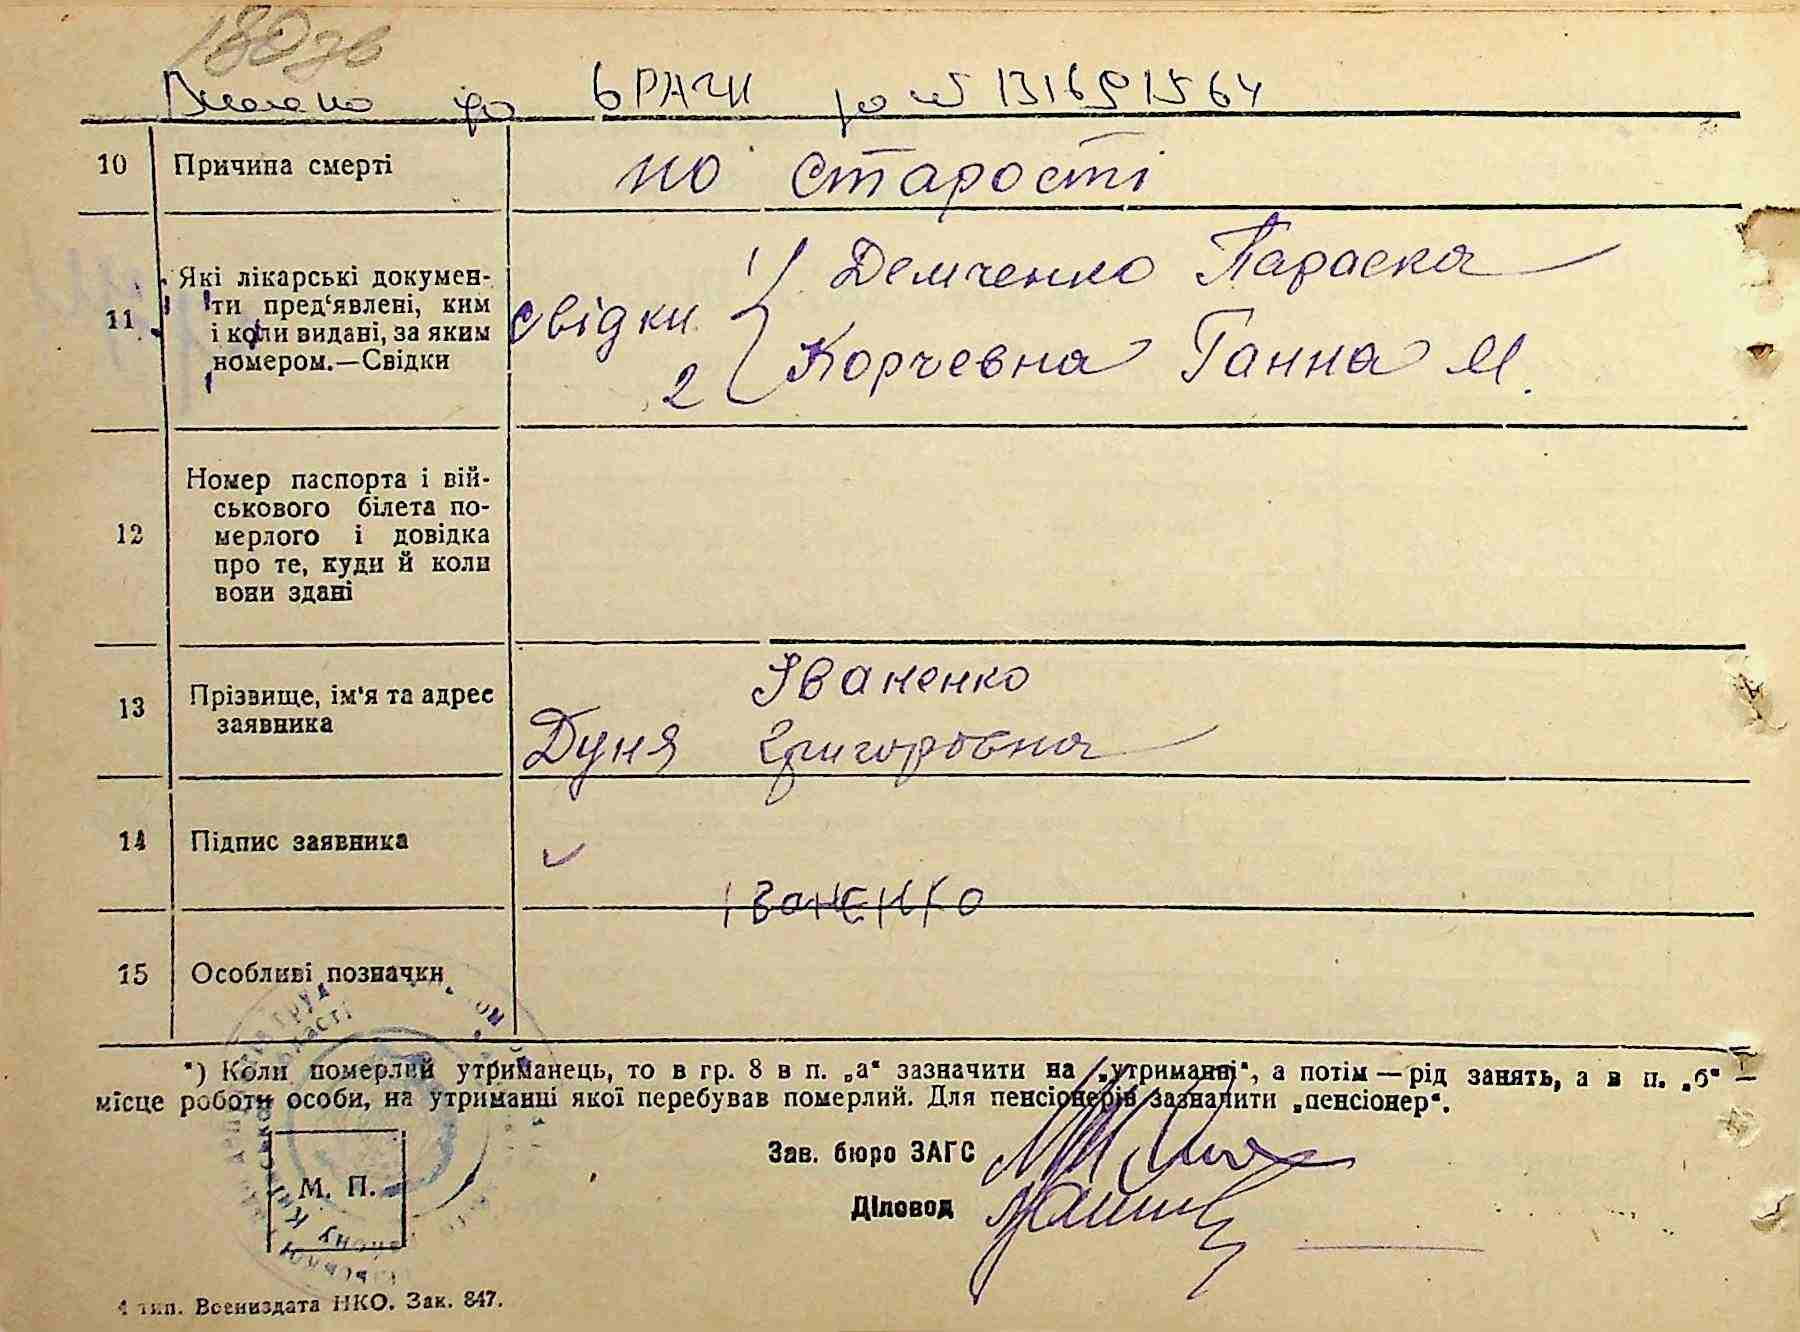 180 зв
Внесено до ВРАЦГ за № 131691564
10 Причина смерті по старості
11 Які лікарські докумен-
ти пред‘явлені, ким
і коли видані, за яким
номером.—Свідки
свідки 1) Демченко Параска
2 Корчевна Ганна М.
12 Номер паспорта і вій-
ськового білета по-
мерлого і довідка
про те, куди й коли
вони здані
13 Прізвище, ім‘я та адрес
заявника
Іваненко
Дуня Григоровна
14 Підпис заявника
Іваненко
15 Особливі позначки
*) Коли померлий утриманець, то в гр. 8 в п. „а“ зазначити на „утриманні“, а потім — рід занять, а в п. „б“ —
місце роботи особи, на утриманні якої перебував померлий. Для пенсіонерів зазначити „пенсіонер“.
Зав. бюро ЗАГС
Діловод
М. П.
4 тип. Воениздата НКО. Зак. 847.